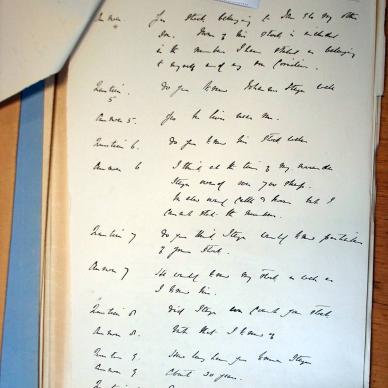 Answer 4 Yes stock belonging to
son. None of his stock is included
in the number I have stated as belonging
to myself and my son Cornelius.
Question 5 Do you know Johannes Steyn well
Answer 5. Yes he lives near me.
Question 6. Do you know his stock well
Answer 6 I think at the time of my surrender
Steyn owned some sheep.
He also owned cattle & horses but I
cannot state the numbers.
Question 7 Do you think Steyn would know particulars
of your stock.
Answer 7 He would know my stock as well as
I knew his.
Question 8. Did Steyn ever count your stock
Answer 8. Not that I know of
Question 9. How long have you known Steyn
Answer 9 About 30 years.